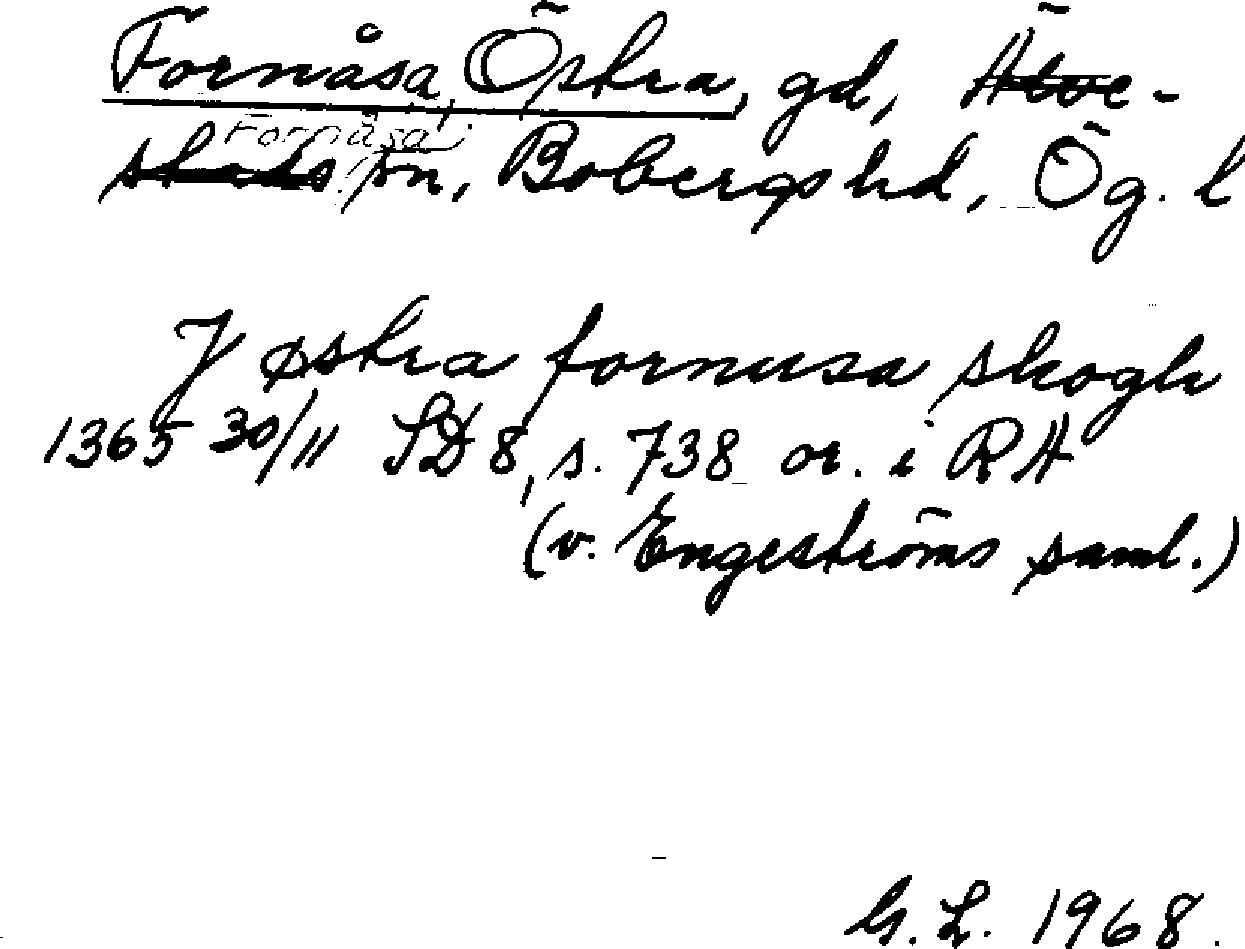 Fornåsa, Östra, gd, Älve-
stads sn, Bobergs hd, Ög. l
Fornåsa
J østra fornusa skogh
1365 30/11 SD 8, s. 738 or. i RA
(v. Engeströms saml.)
G. L. 1968.